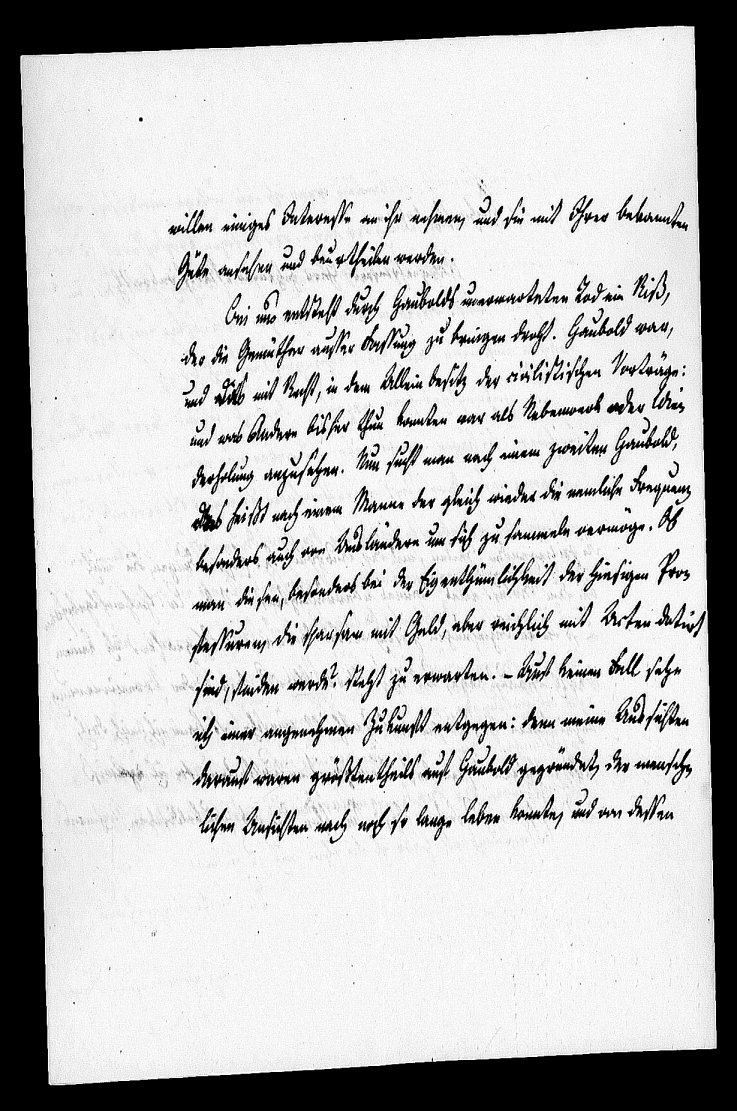 willen einiges Interesse an ihr nehmen, und sie mit Ihrer bekannten
Güte ansehen und beurtheilen werden.
Bei uns entsteht durch Haubolds unerwarteten Tod ein Riß,
der die Gemüther ausser Fassung zu bringen droht. Haubold war,
und dies mit Recht, in dem Alleinbesitz der civilistischen Vorträge:
und was Andere bisher thun konnten war als Nebenwerk oder Wie-
derholung anzusehen. Nun sucht man nach einem zweiten Haubold,
das heißt nach einem Manne der gleich wieder die nemliche Frequenz
besonders auch von Ausländern um sich zu sammeln vermöge. Ob
man diesen, besonders bei der Eigenthümlichkeit der hiesigen Pro-
fessuren, die sparsam mit Geld, aber reichlich mit Arbeiten dotirt
sind, finden werde? steht zu erwarten. – Auf keinen Fall sehe
ich einer angenehmen Zukunft entgegen: denn meine Aussichten
darauf waren größtentheils auf Haubold gegründet, der mensch-
lichen Ansichten nach noch so lange leben konnte, und von dessen